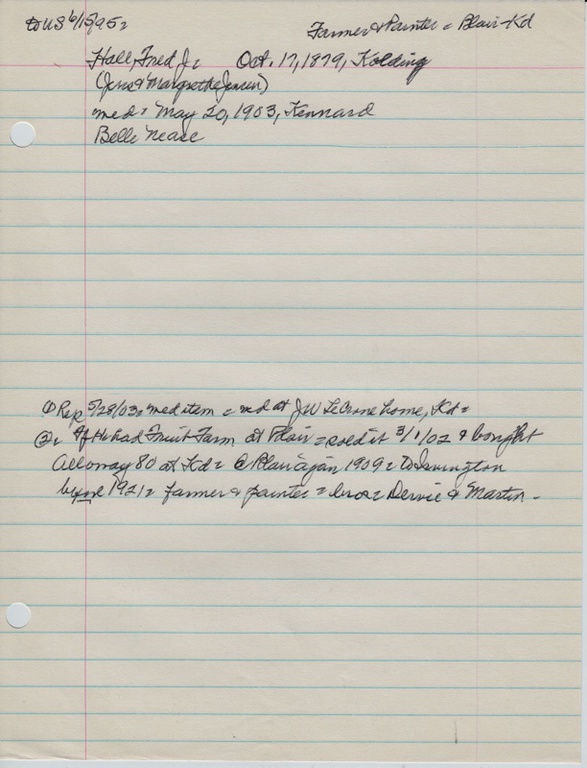 to US 6/15/95=
Farmer & Painter = Blair-Kd
Hall, Fred J= Oct. 17, 1879, Kolding
(Jens & Margrethe Jensen)
med= May 20, 1903, Kennard
Belle Nease
① Rep 5/28/03= med item = md at JW LeCrone home, Kd=
②= Hf Fruit Farm at Blair = sold it 3/1/02 & bought
Alloway 80 at Kd= @ Blair again 1909= to Irvington
by 1921= farmer & painter = bros= & Martin -